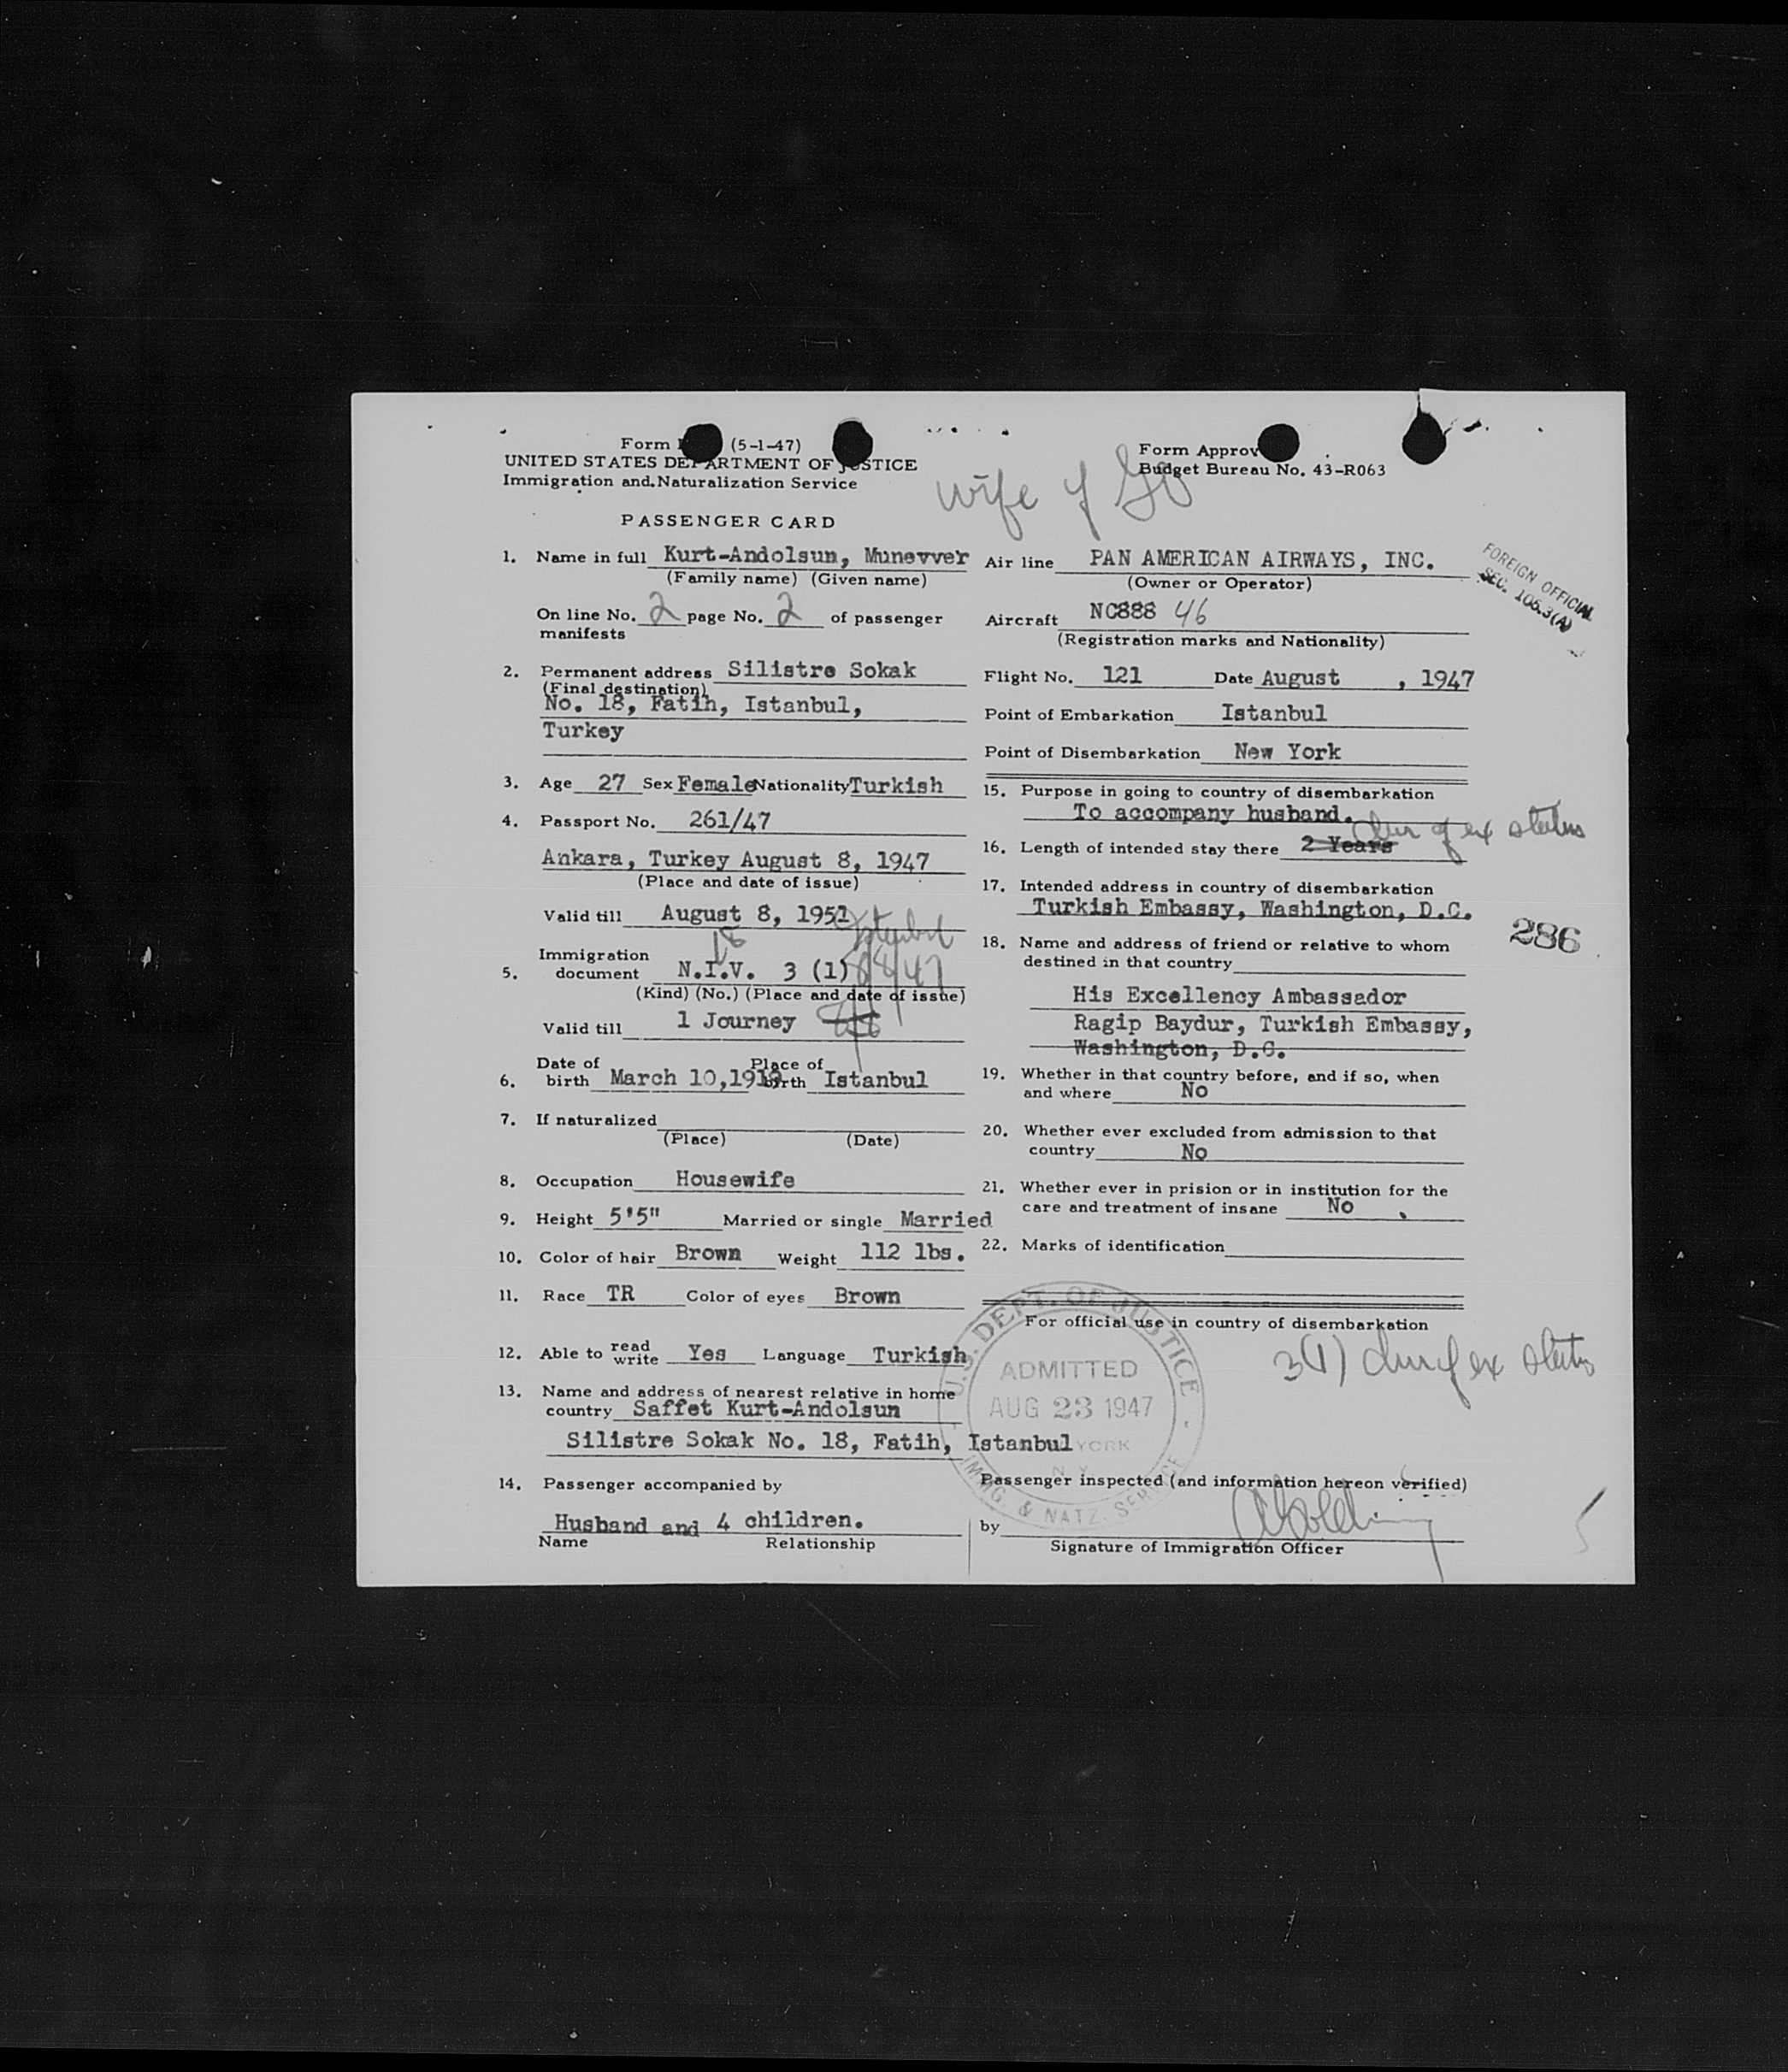 Form (5-1-47)
UNITED STATES DEPARTMENT OF JUSTICE
Immigration and Naturalization Service
PASSENGER CARD
Form Approv
Budget Bureau No. 43-R063
wife of
1. Name in full Kurt-Andolsun, Munevver
(Family name) (Given name)
On line No. 2 page No. 2 of passenger
manifests
2. Permanent address Silistre Sokak
(Final destination)
No. 18, Fatih, Istanbul,
Turkey
3. Age 27 Sex Female Nationality Turkish
4. Passport No. 261/47
Ankara, Turkey August 8, 1947
(Place and date of issue)
Valid till August 8, 1951
18 Istanbul
Immigration
5. document N.I.V. 3 (1)
(Kind) (No.) (Place and date of issue)
Valid till 1 Journey
Date of Place of
6. birth March 10, birth Istanbul
7. If naturalized
(Place) (Date)
8. Occupation Housewife
9. Height 5'5" Married or single Married
10. Color of hair Brown Weight 112 lbs.
11. Race TR Color of eyes Brown
12. Able to read write Yes Language Turkish
13. Name and address of nearest relative in home
country Saffet Kurt-Andolsun
Silistre Sokak No. 18, Fatih, Istanbul
14. Passenger accompanied by
Husband and 4 children.
Name Relationship
Air line PAN AMERICAN AIRWAYS, INC.
(Owner or Operator)
FOREIGN OFFICIAL
SEC. 105.3(A)
Aircraft NC888 46
(Registration marks and Nationality)
Flight No. 121 Date August , 1947
Point of Embarkation Istanbul
Point of Disembarkation New York
15. Purpose in going to country of disembarkation
To accompany husband.
dur of ex status
16. Length of intended stay there 2 Years
17. Intended address in country of disembarkation
Turkish Embassy, Washington, D.C.
286
18. Name and address of friend or relative to whom
destined in that country
His Excellency Ambassador
Ragip Baydur, Turkish Embassy,
Washington, D.C.
19. Whether in that country before, and if so, when
and where No
20. Whether ever excluded from admission to that
country No
21. Whether ever in prision or in institution for the
care and treatment of insane No
22. Marks of identification
For official use in country of disembarkation
3(1) dur of ex status
U.S. DEPT. OF JUSTICE
ADMITTED
AUG 23 1947
YORK
N.Y.
IMMIG. & NATZ. SERVICE
Passenger inspected (and information hereon verified)
by
Signature of Immigration Officer